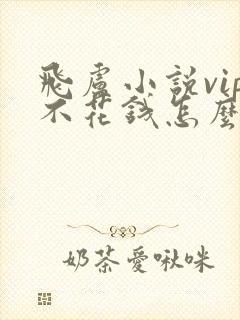 飛盧小説vip
不花錢怎麼
奶茶愛啾咪